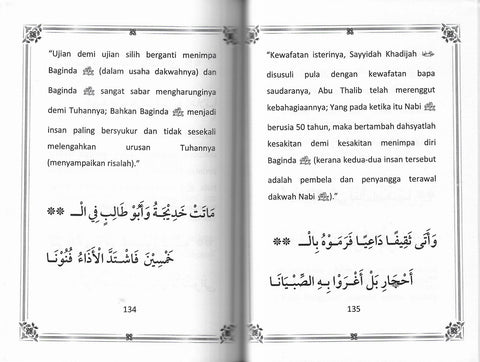 “Ujian demi ujian silih berganti menimpa
Baginda ﷺ (dalam usaha dakwahnya) dan
Baginda ﷺ sangat sabar mengharunginya
demi Tuhannya; Bahkan Baginda ﷺ menjadi
insan paling bersyukur dan tidak sesekali
melengahkan urusan Tuhannya
(menyampaikan risalah).”
مَاتَتْ خَدِيْجَةُ وَأَبُوْ طَالِبٍ فِي الْـ ** 
خَمْسِيْنَ فَاشْتَدَّ الْأَذَاءُ فُنُوْنَا
134
“Kewafatan isterinya, Sayyidah Khadijah
disusuli pula dengan kewafatan bapa
saudaranya, Abu Thalib telah merenggut
kebahagiaannya; Yang pada ketika itu Nabi ﷺ
berusia 50 tahun, maka bertambah dahsyatlah
kesakitan demi kesakitan menimpa diri
Baginda ﷺ (kerana kedua-dua insan tersebut
adalah pembela dan penyayangi terawal
dakwah Nabi ﷺ).”
وَأَتَى ثَقِيْفًا دَاعِيًا فَرَمَوْهُ بِالْـ **
أَحْجَارِ بَلْ أَغْرَوْا بِهِ الصِّبْيَانَا
135